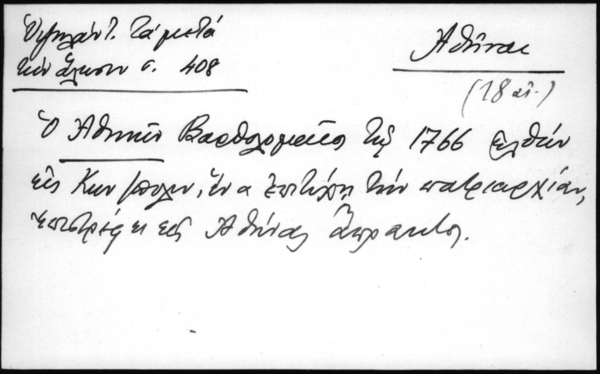 Ὑψηλάντ. Τὰ μετὰ
τὴν ἅλωσιν σ. 408
Ἀθῆναι
(18 αἰ.)
Ὁ Ἀθηνῶν Βαρθολομαῖος τῷ 1766 ἐλθὼν
εἰς Κων/πολιν, ἵνα ἐπιτύχῃ τὴν πατριαρχίαν,
ἐπιστρέφει εἰς Ἀθήνας ἄπρακτος.